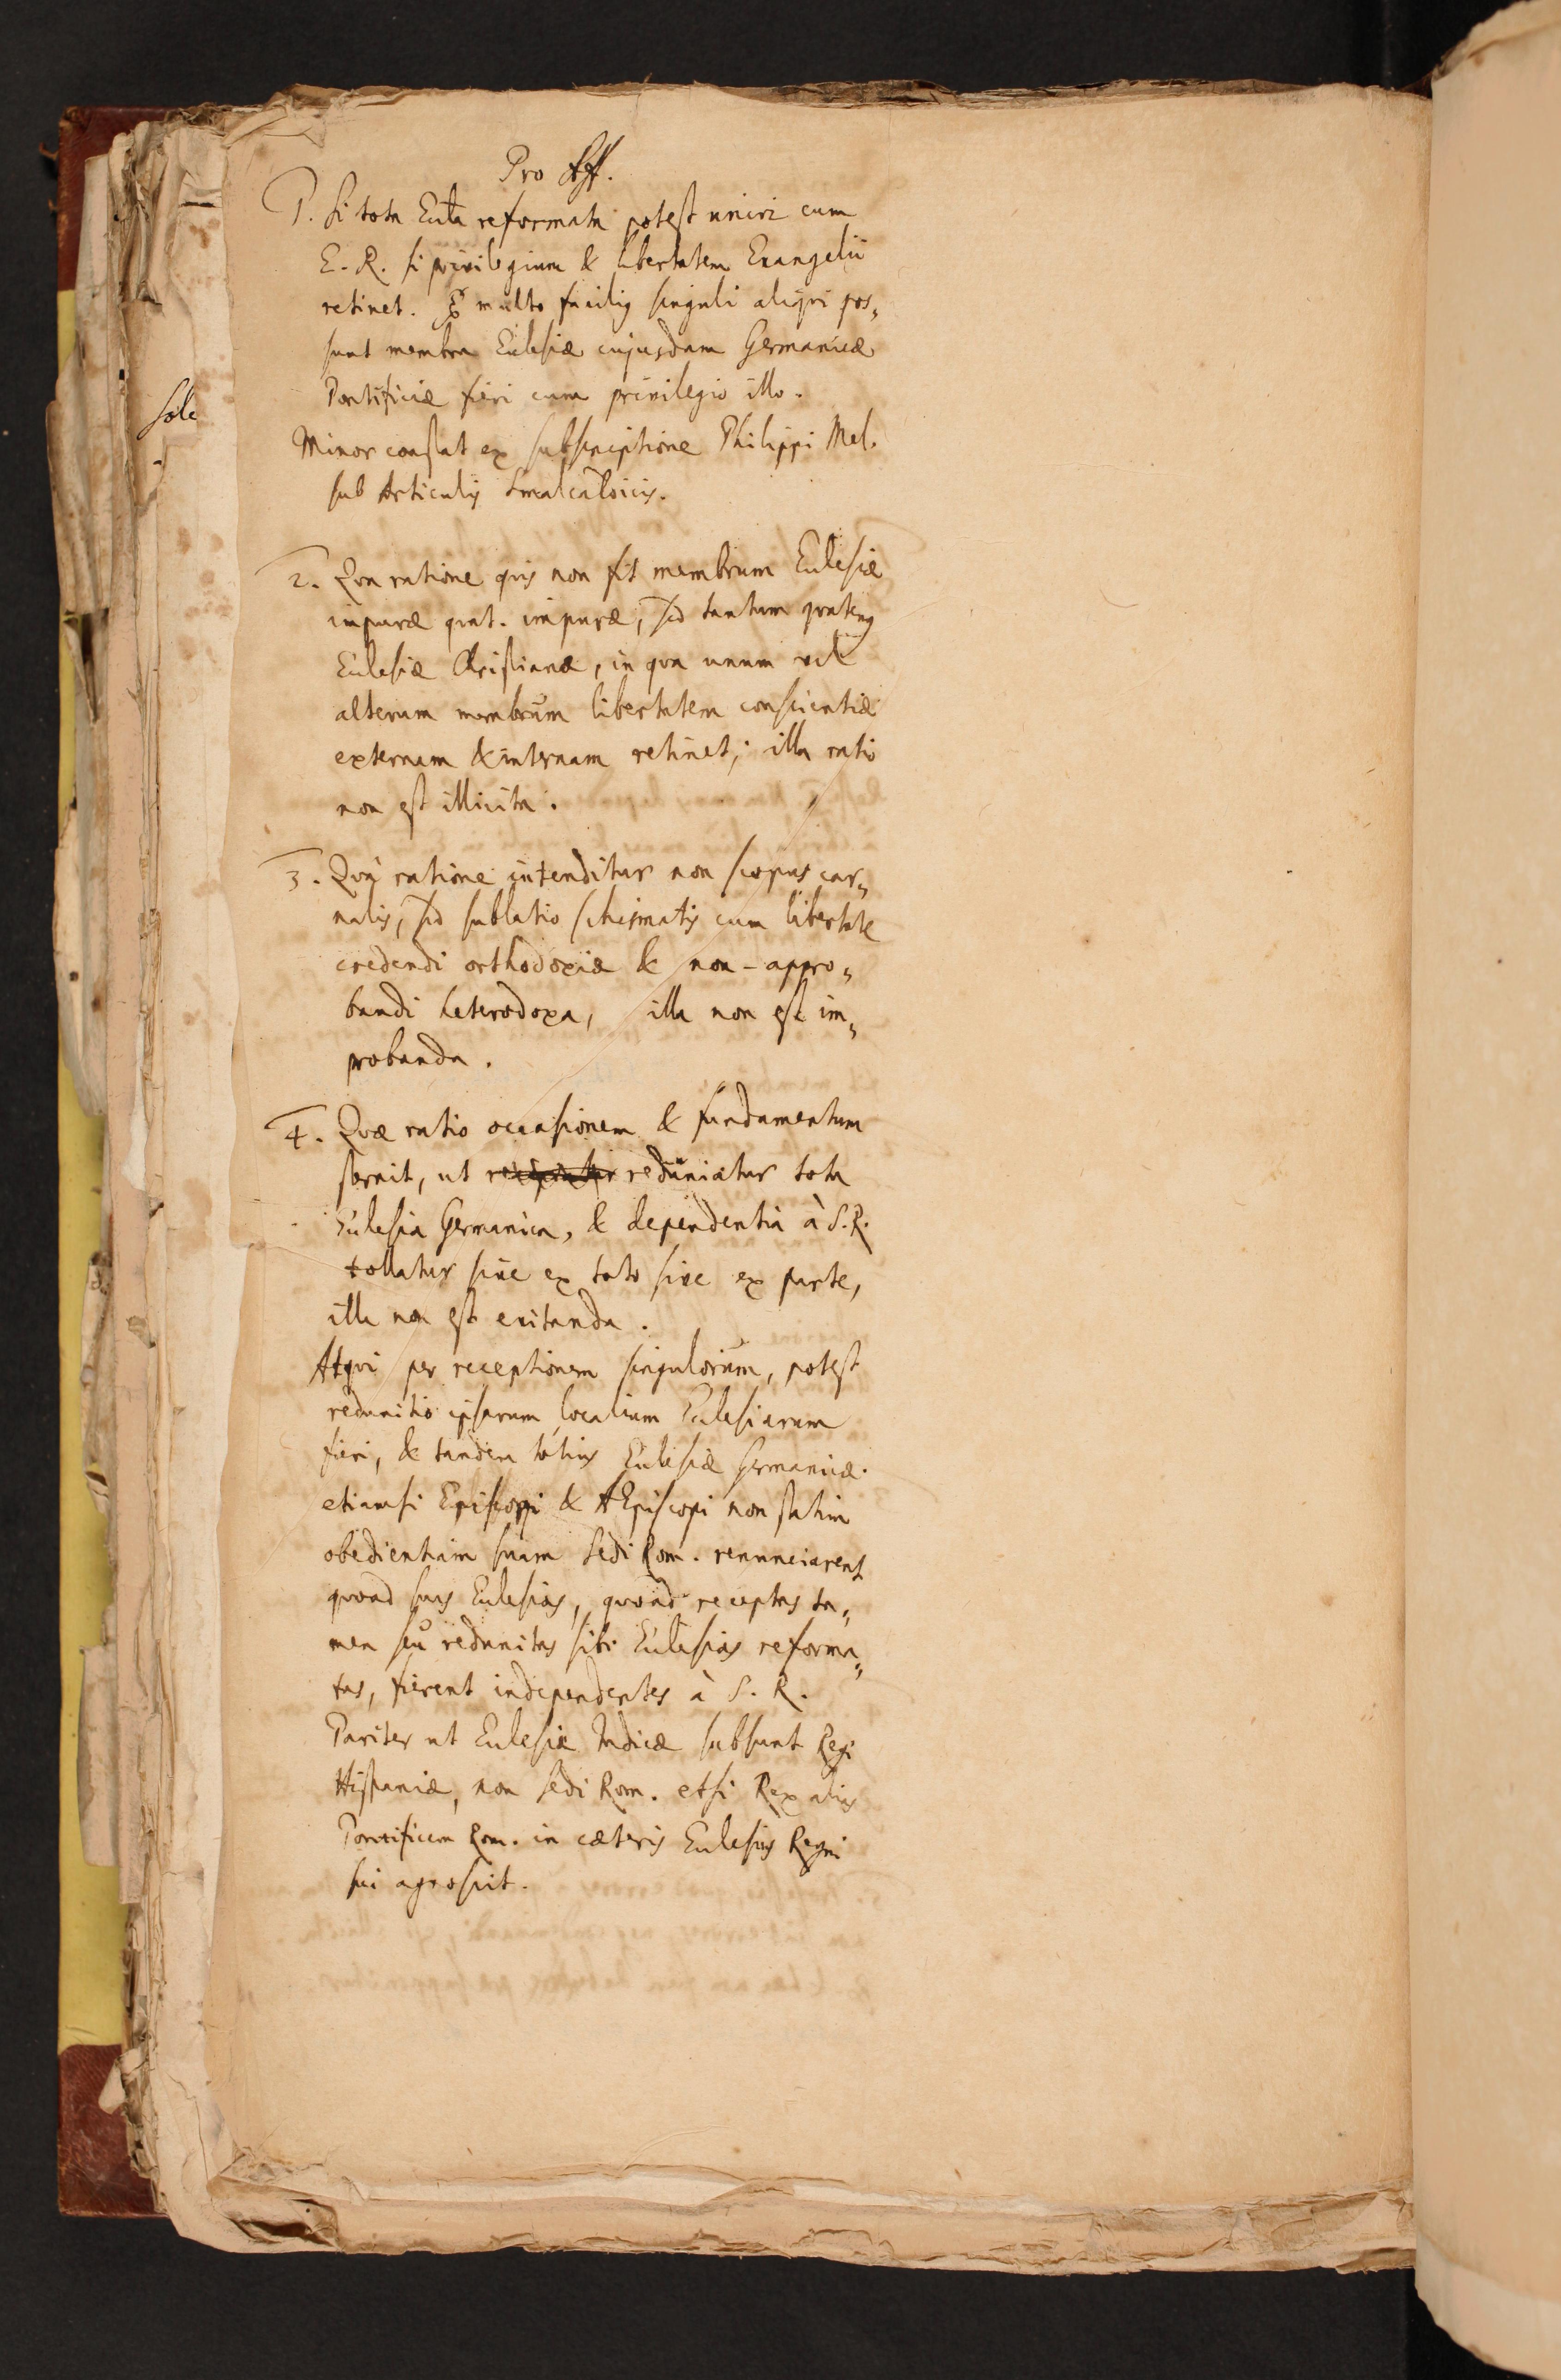 Pro Aff.
1. Si tota Eccl̃a reformata potest uniri cum
E. R. si privilegium & libertatem Evangelii
retinet. E. multo facilius singuli aliqvi pos„
sunt membra Ecclesiæ cujusdam Germanicæ
Pontificiæ fieri cum privilegio illo.
Minor constat ex subscriptione Philippi Mel.
sub Articulis Smalcaldicis.
2. Qva ratione qvis non fit membrum Ecclesiæ
impuræ qvat. impuræ, sed tantum qvatenus
Ecclesiæ Christianæ, in qva unum vel
alterum membrum libertatem conscientiæ
externam & internam retinet; illa ratio
non est illicita.
3. Qvâ ratione intenditur non scopus car„
nalis, sed sublatio schismatis cum libertate
credendi orthodoxia & non-appro„
bandi heterodoxa, illa non est im„
probanda.
4. Qvæ ratio occasionem & fundamentum
sternit, ut reduniatur tota
Ecclesia Germanica, & dependentia à S. R.
tollatur sive ex toto sive ex parte,
illa non est evitanda.
Atqvi per receptionem singulorum, potest
redunitio ipsarum localium Ecclesiarum
fieri, & tandem totius Ecclesiæ Germanicæ.
etiamsi Episcopi & AEpiscopi non statim
obedientiam suam Sedi Rom. renunciarent
qvoad suas Ecclesias, qvoad receptas ta„
men seu redunitas sibi Ecclesias reforma„
tas, fierent independentes à S. R.
Pariter ut Ecclesiæ Indicæ subsunt Regi
Hispaniæ, non Sedi Rom. etsi Rex alias
Pontificem Rom. in cæteris Ecclesiis Regni
sui agnoscit.
sole